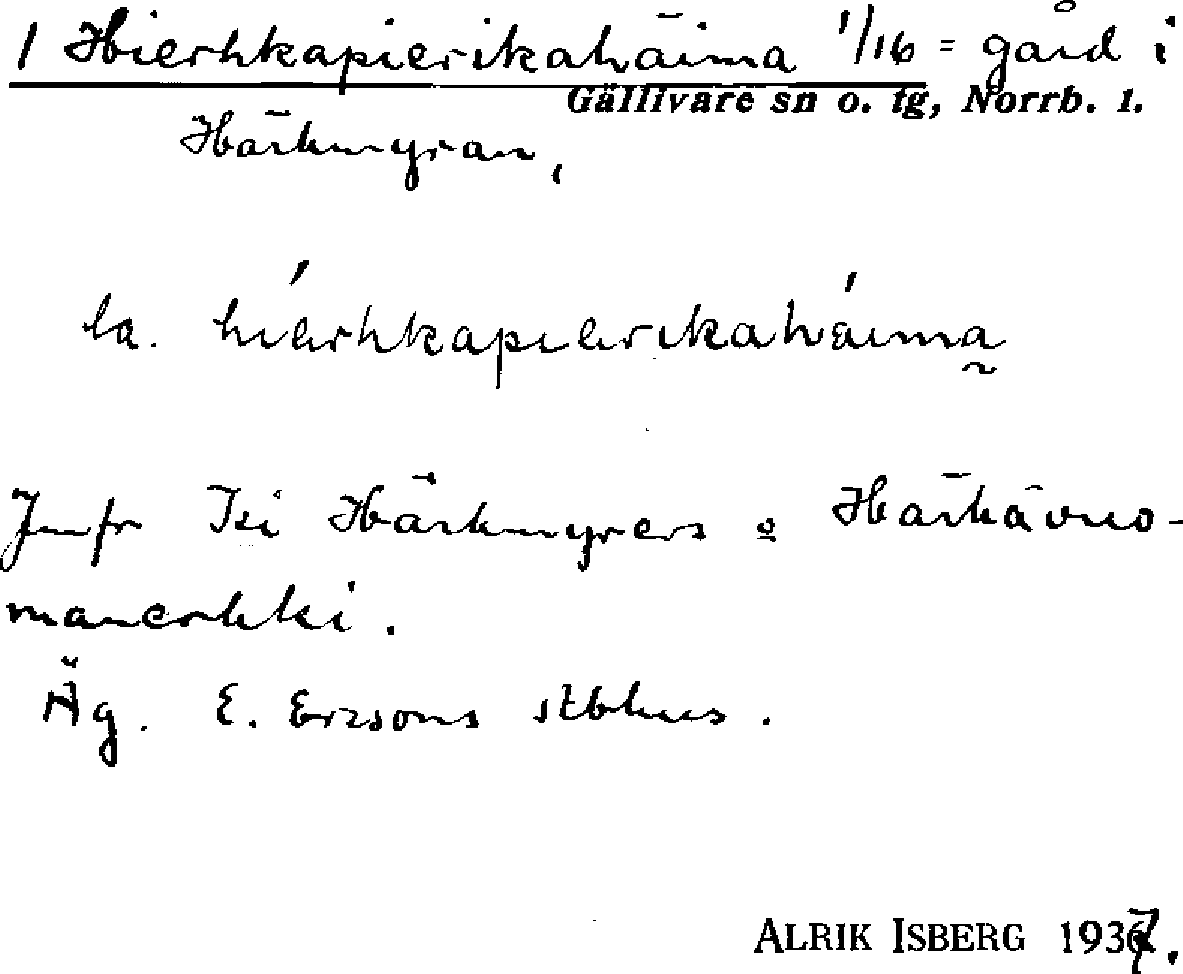 1 Hierhkapierikahäima 1/16 = gård i
Gällivare sn o. tg, Norrb. l.
Härkmyran,
la. hierhkapierikahäima
Jmfr Isi Härkmyrers o Härkävuo-
Äg. E. Ericsons stbhus.
ALRIK ISBERG 1937.